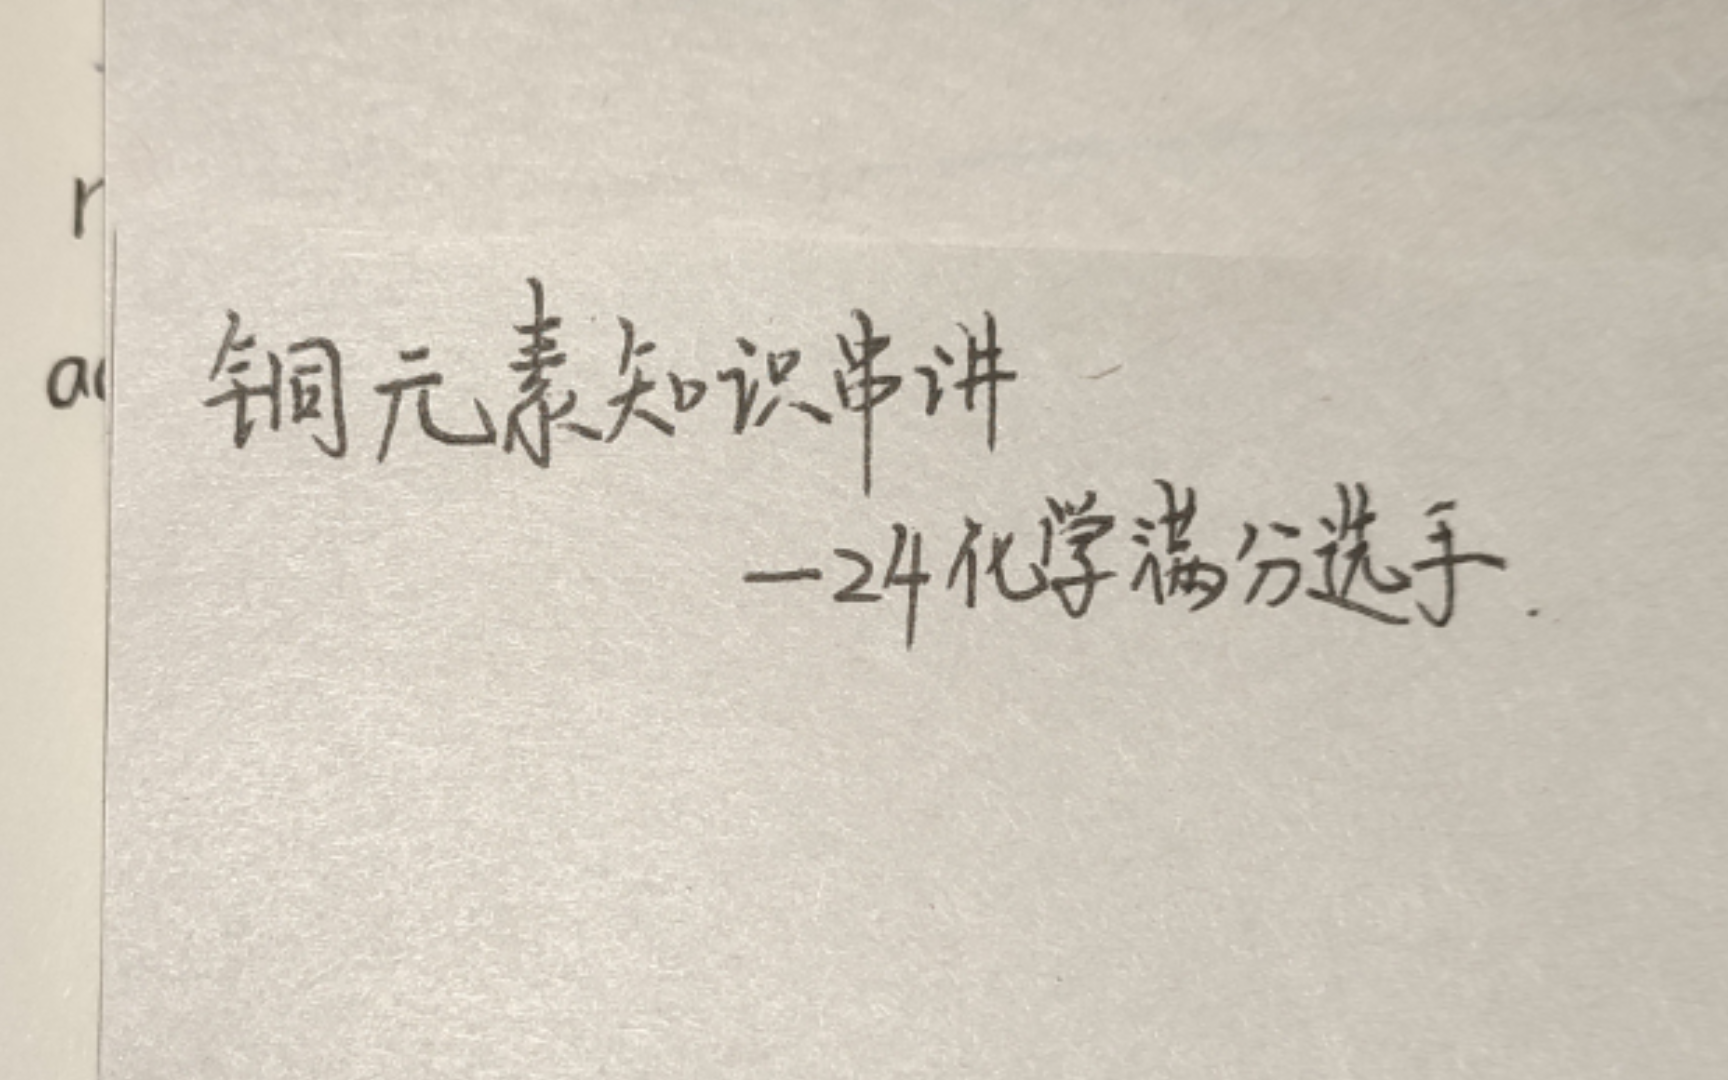 铜元素知识串讲
—24化学满分选手.